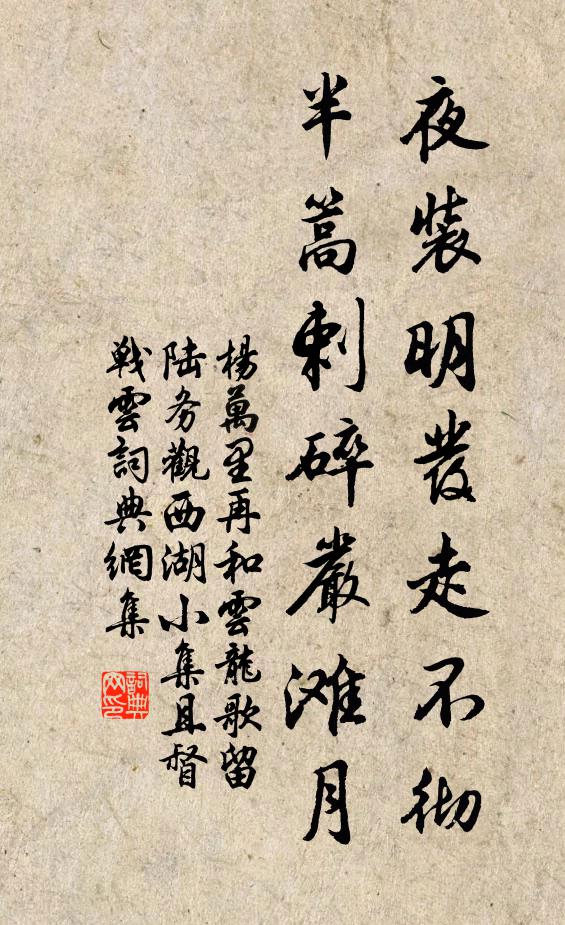 夜裝明發走不彻
半篙刺碎嚴滩月
楊萬里再和雲龍歌留
陆务觀西湖小集且督
戰雲詞典網集
詞典
网印